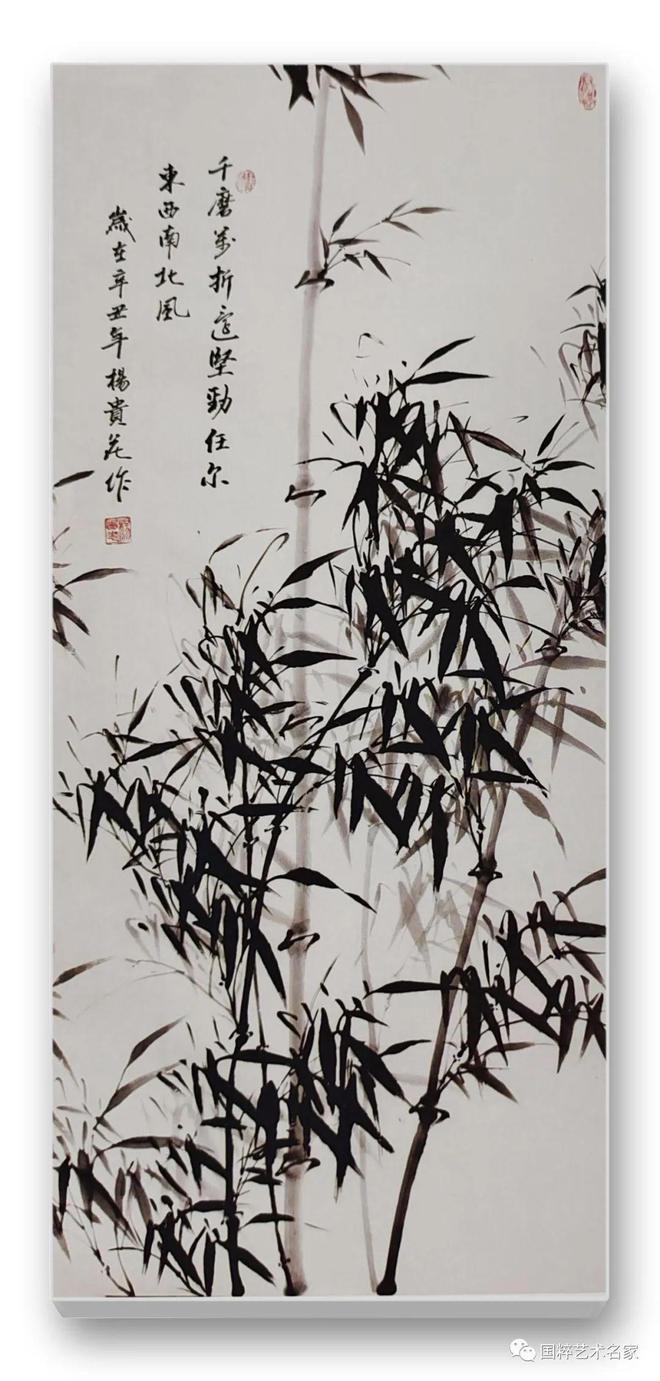 千磨萬折還堅勁任尔
東西南北風
歲在辛丑年楊貴花作
国粹艺术名家